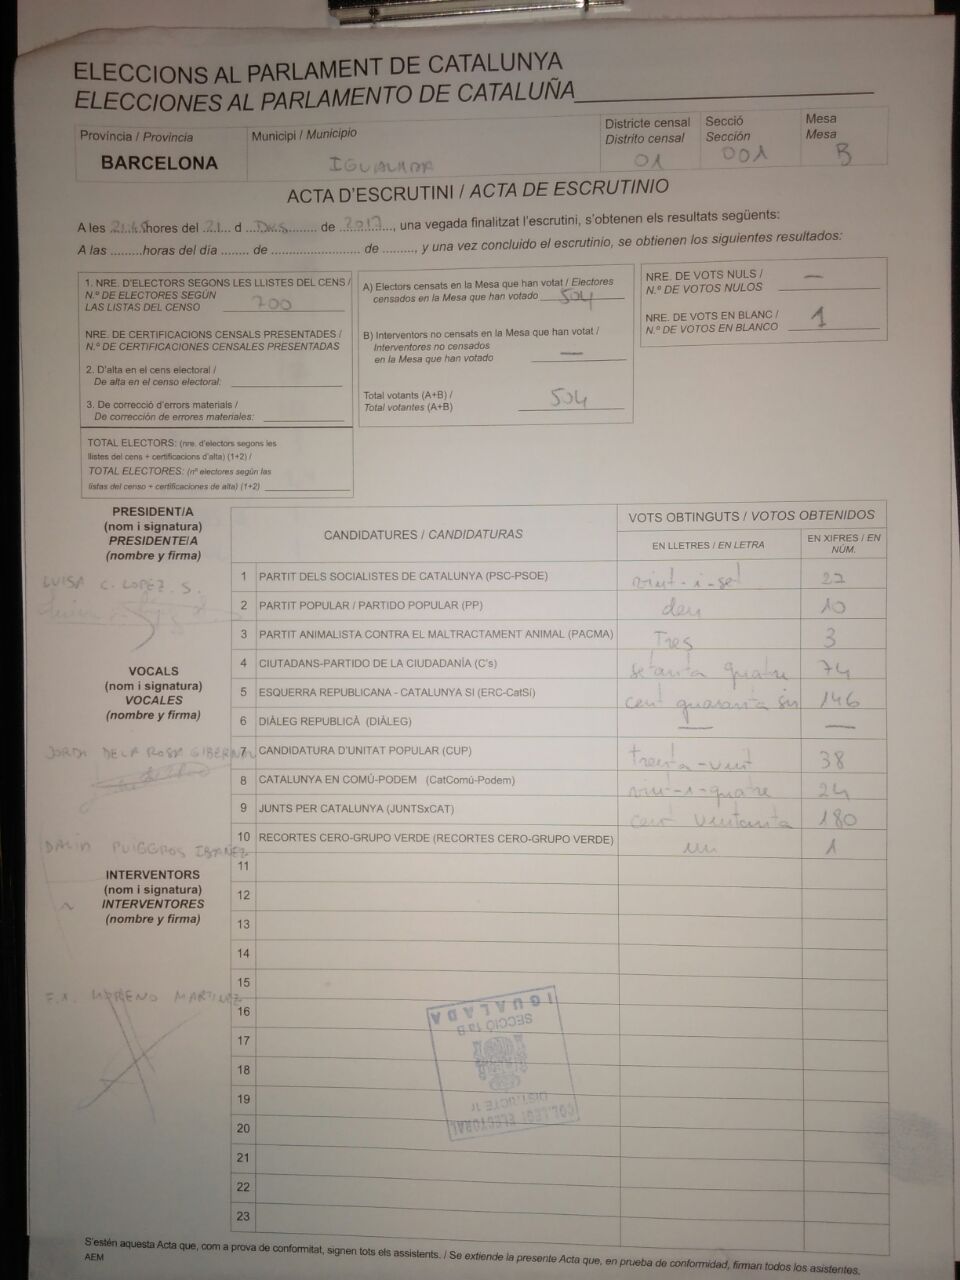 ELECCIONS AL PARLAMENT DE CATALUNYA
ELECCIONES AL PARLAMENTO DE CATALUÑA
Província / Provincia
BARCELONA
Municipi / Municipio
IGUALADA
Districte censal
Distrito censal
01
Secció
Sección
001
Mesa
Mesa
B
ACTA D'ESCRUTINI / ACTA DE ESCRUTINIO
A les 21:45 hores del 21 d Des de 2017, una vegada finalitzat l'escrutini, s'obtenen els resultats següents:
A las ......... horas del día ........ de ......................... de .........., y una vez concluido el escrutinio, se obtienen los siguientes resultados:
1. NRE. D'ELECTORS SEGONS LES LLISTES DEL CENS /
N.º DE ELECTORES SEGÚN
LAS LISTAS DEL CENSO 700
NRE. DE CERTIFICACIONS CENSALS PRESENTADES /
N.º DE CERTIFICACIONES CENSALES PRESENTADAS
2. D'alta en el cens electoral /
De alta en el censo electoral:
3. De correcció d'errors materials /
De corrección de errores materiales:
TOTAL ELECTORS: (nre. d'electors segons les
llistes del cens + certificacions d'alta) (1+2) /
TOTAL ELECTORES: (nº electores según las
listas del censo + certificaciones de alta) (1+2)
A) Electors censats en la Mesa que han votat / Electores
censados en la Mesa que han votado 504
B) Interventors no censats en la Mesa que han votat /
Interventores no censados
en la Mesa que han votado —
Total votants (A+B) /
Total votantes (A+B) 504
NRE. DE VOTS NULS /
N.º DE VOTOS NULOS —
NRE. DE VOTS EN BLANC /
N.º DE VOTOS EN BLANCO 1
PRESIDENT/A
(nom i signatura)
PRESIDENTE/A
(nombre y firma)
LUISA C. LOPEZ S.
VOCALS
(nom i signatura)
VOCALES
(nombre y firma)
JORDI DE LA ROSA GIBERNAU
DALIA PUIGGROS IBAÑEZ
INTERVENTORS
(nom i signatura)
INTERVENTORES
(nombre y firma)
MORENO MARTINEZ
CANDIDATURES / CANDIDATURAS
VOTS OBTINGUTS / VOTOS OBTENIDOS
EN LLETRES / EN LETRA
EN XIFRES / EN NÚM.
1 PARTIT DELS SOCIALISTES DE CATALUNYA (PSC-PSOE) vint-i-set 27
2 PARTIT POPULAR / PARTIDO POPULAR (PP) deu 10
3 PARTIT ANIMALISTA CONTRA EL MALTRACTAMENT ANIMAL (PACMA) Tres 3
4 CIUTADANS-PARTIDO DE LA CIUDADANÍA (C's) setanta quatre 74
5 ESQUERRA REPUBLICANA - CATALUNYA SI (ERC-CatSí) cent quaranta sis 146
6 DIÀLEG REPUBLICÀ (DIÀLEG) — —
7 CANDIDATURA D'UNITAT POPULAR (CUP) trenta-vuit 38
8 CATALUNYA EN COMÚ-PODEM (CatComú-Podem) vint-i-quatre 24
9 JUNTS PER CATALUNYA (JUNTSxCAT) cent vuitanta 180
10 RECORTES CERO-GRUPO VERDE (RECORTES CERO-GRUPO VERDE) un 1
11
12
13
14
15
16
17
18
19
20
21
22
23
COL·LEGI ELECTORAL
DISTRICTE 1r
SECCIÓ 1a B
IGUALADA
S'estén aquesta Acta que, com a prova de conformitat, signen tots els assistents. / Se extiende la presente Acta que, en prueba de conformidad, firman todos los asistentes.
AEM